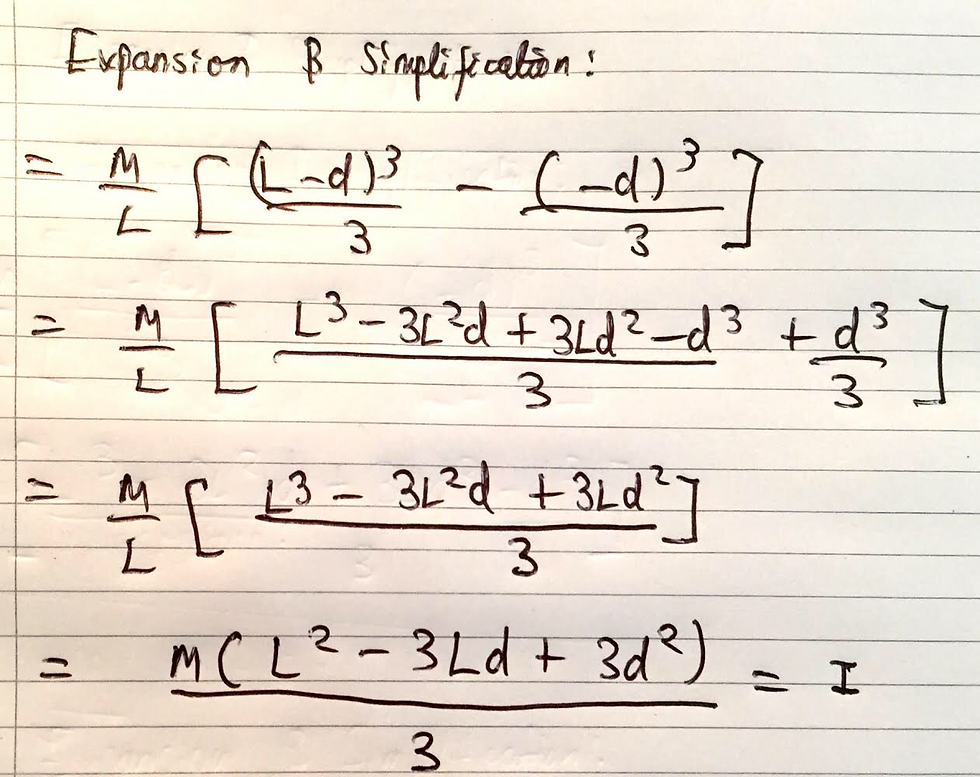 Expansion & Simplification:
= M/L [ (L-d)³/3 - (-d)³/3 ]
= M/L [ (L³ - 3L²d + 3Ld² - d³)/3 + d³/3 ]
= M/L [ (L³ - 3L²d + 3Ld²)/3 ]
= M(L² - 3Ld + 3d²)/3 = I